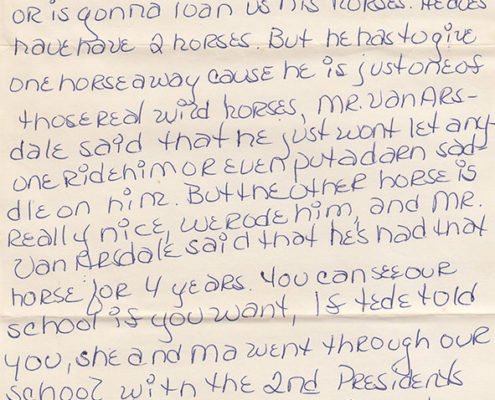 OR is gonna loan us his horses. He does
have have 2 horses. But he has to give
one horse away cause he is just one of
those real wild horses, Mr. Van Ars-
dale said that he just wont let any-
one ride him or even put a darn sad-
dle on him. But the other horse is
really nice, we rode him, and Mr.
Van Arsdale said that he's had that
horse for 4 years. You can see our
school is you want, Is tede told
you, she and ma went through our
school with the 2nd Presidents